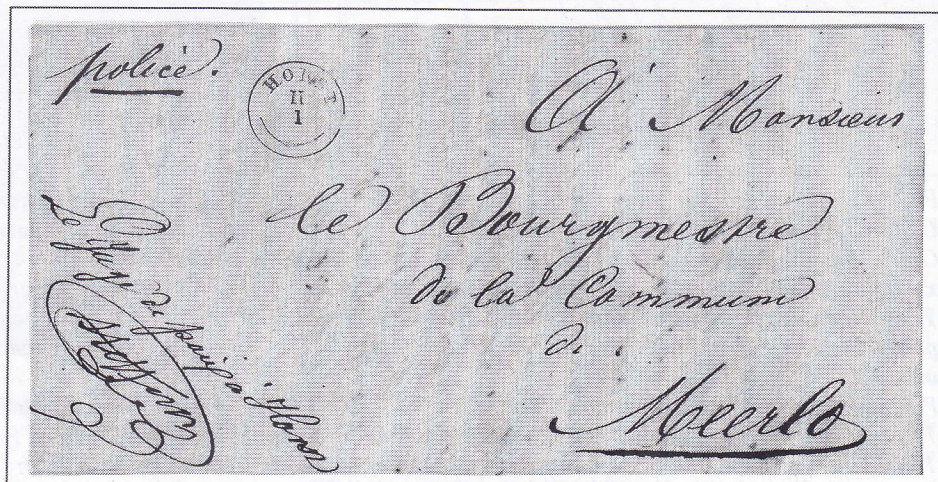 police.
HORST
II
1
A Monsieur
le Bourgmestre
de la Commune
de
Meerlo
Le Juge de paix à Horst